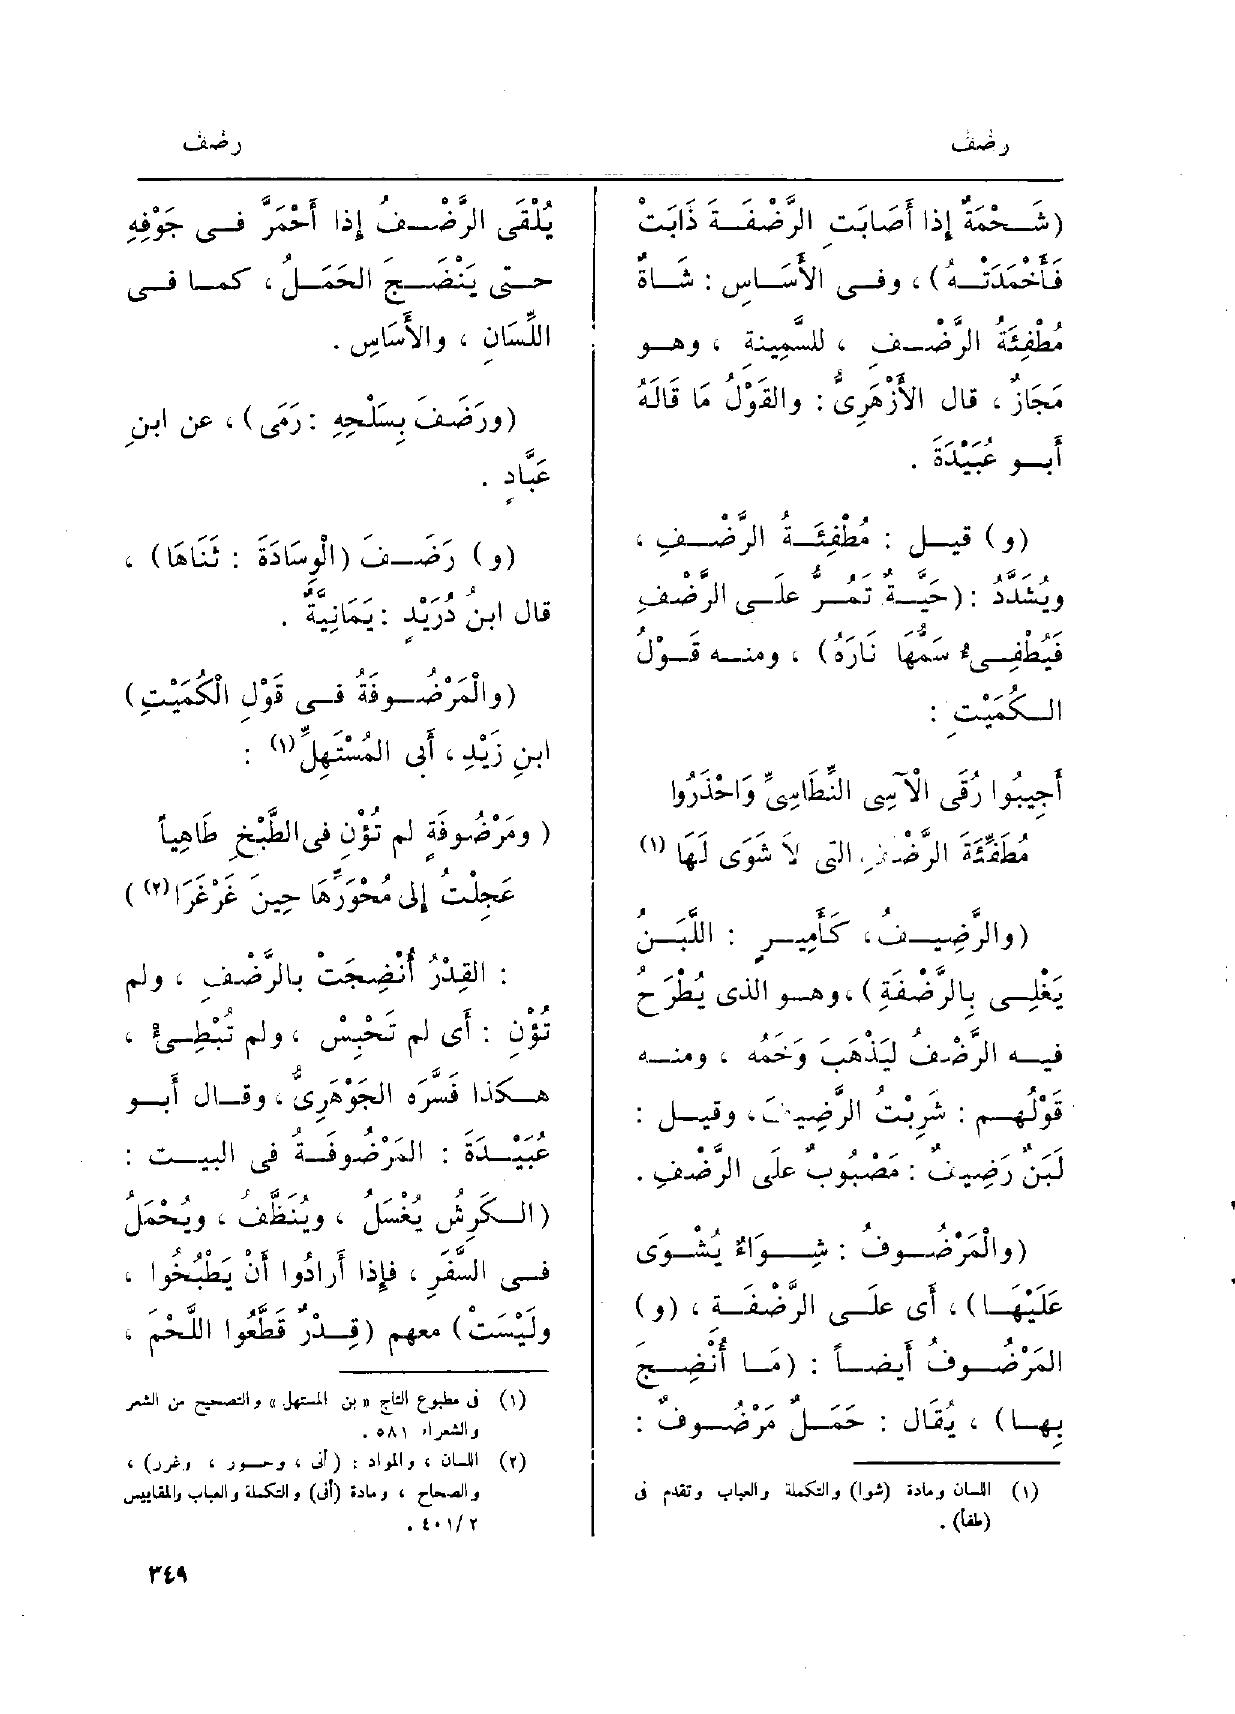 رضف
رضف
(شَحْمَةٌ إذا أَصَابَتِ الرَّضْفَةَ ذَابَتْ
فَأَخْمَدَتْهُ) ، وفى الأَسَاسِ : شَاةٌ
مُطْفِئَةُ الرَّضْفِ ، للسَّمِينةِ ، وهو
مَجَازٌ ، قال الأَزْهَرِىُّ : والقَوْلُ مَا قَالَهُ
أبو عُبَيْدَةَ .
(و) قيل : مُطْفِئَةُ الرَّضْفِ ،
ويُشَدَّدُ : (حَيَّةٌ تَمُرُّ علَى الرَّضْفِ
فَيُطْفِىءُ سَمُّها نَارَهُ) ، ومنه قَوْلُ
الكُمَيْتِ :
أَجِيبُوا رُقَى الْآسِى النِّطَاسِىِّ وَاحْذَرُوا
مُطَفِّئَةَ الرَّضْفِ التى لاَ شَوَى لَهَا (١)
(والرَّضِيفُ ، كَأَمِيرٍ : اللَّبَنُ
يَغْلِى بِالرَّضْفَةِ) ، وهو الذى يُطْرَحُ
فيه الرَّضْفُ لِيَذْهَبَ وَخَمُه ، ومنه
قَوْلُهم : شَرِبْتُ الرَّضِيفَ ، وقيل :
لَبَنٌ رَضِيفٌ : مَصْبُوبٌ على الرَّضْفِ .
(والْمَرْضُوفُ : شِوَاءٌ يُشْوَى
عَلَيْهَا) ، أى علَى الرَّضْفَةِ ، (و)
المَرْضُوفُ أيضاً : (مَا أُنْضِجَ
بِها) ، يُقَال : حَمَلٌ مَرْضُوفٌ :
(١) اللسان ومادة (شوا) والتكملة والعباب وتقدم فى
(طفأ) .
يُلْقَى الرَّضْفُ إذا أَحْمَرَّ فى جَوْفِهِ
حتى يَنْضَجَ الحَمَلُ ، كما فى
اللِّسَانِ ، والأَسَاسِ .
(ورَضَفَ بِسَلْحِهِ : رَمَى) ، عن ابنِ
عَبَّادٍ .
(و) رَضَفَ (الْوِسَادَةَ : ثَنَاهَا) ،
قال ابنُ دُرَيْدٍ : يَمَانِيَّةٌ .
(والْمَرْضُوفَةُ فى قَوْلِ الْكُمَيْتِ)
ابنِ زَيْدٍ ، أَبى المُسْتَهِلِّ (١) :
( ومَرْضُوفَةٍ لم تُؤْنِ فى الطَّبْخِ طَاهِياً
عَجِلْتُ إلى مُحْوَرِّهَا حِينَ غَرْغَرَا (٢) )
: القِدْرُ أُنْضِجَتْ بالرَّضْفِ ، ولم
تُؤْنِ : أى لم تَحْبِسْ ، ولم تُبْطِىءْ ،
هكذا فَسَّرَه الجَوْهَرِىُّ ، وقال أبو
عُبَيْدَةَ : المَرْضُوفَةُ فى البيت :
(الكَرِشُ يُغْسَلُ ، ويُنَظَّفُ ، ويُحْمَلُ
فى السَّفَرِ ، فإذا أَرادُوا أَنْ يَطْبُخُوا ،
ولَيْسَتْ) معهم (قِدْرٌ قَطَّعُوا اللَّحْمَ ،
(١) فى مطبوع التاج « بن المستهل » والتصحيح من الشعر
والشعراء ٥٨١ .
(٢) اللسان ، والمواد : (أنى ، وحور ، وغرر) ،
والصحاح ، ومادة (أنى) والتكملة والعباب والمقاييس
٤٠١/٢ .
٣٤٩